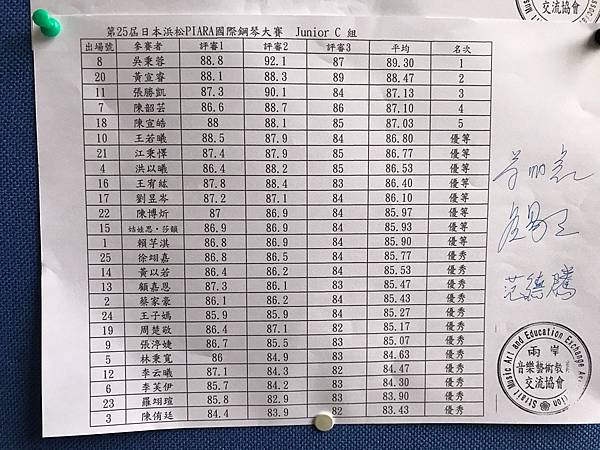 第25屆日本浜松PIARA國際鋼琴大賽 Junior C 組
出場號 參賽者 評審1 評審2 評審3 平均 名次
8 吳秉蓉 88.8 92.1 87 89.30 1
20 黃宣睿 88.1 88.3 89 88.47 2
11 張勝凱 87.3 90.1 84 87.13 3
7 陳韶芸 86.6 88.7 86 87.10 4
18 陳宣皓 88 88.1 85 87.03 5
10 王若曦 88.5 87.9 84 86.80 優等
21 江秉懌 87.4 87.9 85 86.77 優等
4 洪以曦 86.4 88.2 85 86.53 優等
16 王宥紘 87.8 88.4 83 86.40 優等
17 劉昱岑 87.2 87.1 84 86.10 優等
22 陳博炘 87 86.9 84 85.97 優等
15 姑娃思·莎韻 86.9 86.9 84 85.93 優等
1 賴芓淇 86.8 86.9 84 85.90 優等
25 徐翊嘉 86.8 86.5 84 85.77 優秀
14 黃以若 86.4 86.2 84 85.53 優秀
13 顧嘉恩 87.3 86.1 83 85.47 優秀
2 蔡家豪 86.1 86.2 84 85.43 優秀
24 王子嫣 85.9 85.9 84 85.27 優秀
19 周楚敬 86.4 87.1 82 85.17 優秀
9 張渟婕 86.7 85.5 83 85.07 優秀
5 林秉寬 86 84.9 83 84.63 優秀
12 李云曦 87.1 84.3 82 84.47 優秀
6 李芙伊 85.7 84.2 83 84.30 優秀
23 羅翊瑄 85.8 82.9 83 83.90 優秀
3 陳侑廷 84.4 83.9 82 83.43 優秀
范德騰
Strait Music Art and Education Exchange
兩岸
音樂藝術教
交流協會
交流協會